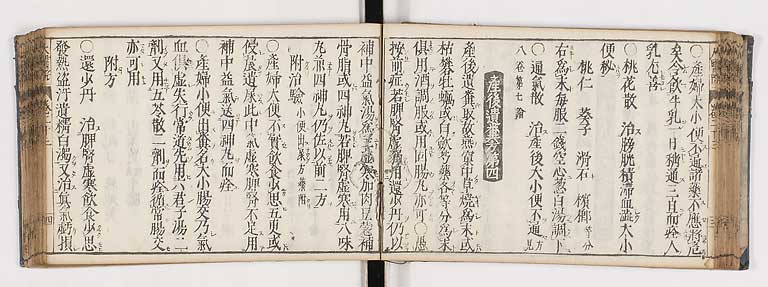 ○産婦大小便不通諸藥不應將危
矣令飲牛乳一日稍通三日而痊人
乳尤善
○桃花散 治膀胱積滯血澁大小
便秘
桃仁 葵子 滑石 檳榔 等分
右為末毎服二錢空心葱白湯調下
○通氣散 治産後大小便不通方見
八卷第七論
産後遺糞方論第四
産後遺糞取故燕窠中草燒為末或
枯礬牡蠣或白歛芍藥各等分為末
俱用酒調服或用固腸丸亦可○愚
按前症若脾腎虛弱用還少丹仍以
補中益氣湯為主虛寒加肉豆蔲補
骨脂或四神丸若脾腎虛寒用八味
丸兼四神丸仍佐以前二方
附治驗 小便出糞方藥附
○産婦大便不實飲食少思五更或
侵晨遺屎此中氣虛寒脾腎不足用
補中益氣送四神丸而痊
○産婦小便出糞名大小腸交乃氣
血俱虛失行常道先用六君子湯二
劑又用五苓散二劑而痊循常腸交
亦可用
附方
○還少丹 治脾腎虛寒飲食少思
發熱盜汗遺精白濁又治真氣虧損